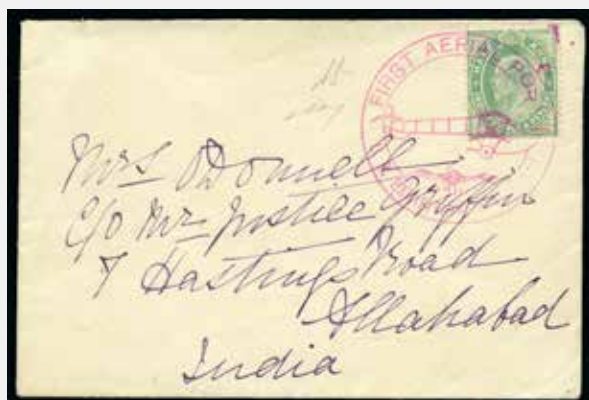 FIRST AERIAL POST
Mrs O'Donnell
C/o Mr Justice Griffin
7 Hastings Road
Allahabad
India